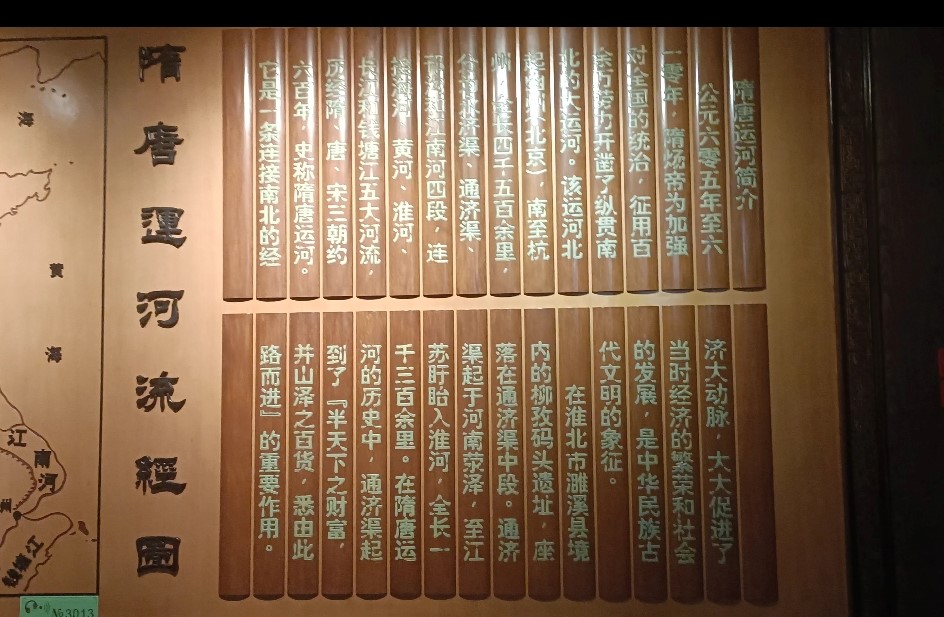 隋唐运河流經圖
隋唐运河简介
公元六零五年至六
一零年，隋炀帝为加强
对全国的统治，征用百
余万劳力开凿了纵贯南
北的大运河。该运河北
起幽州（北京），南至杭
州，全长四千五百余里，
分永济渠、通济渠、
邗沟和江南河四段，连
接海河、黄河、淮河、
长江和钱塘江五大河流，
历经隋、唐、宋三朝约
六百年，史称隋唐运河。
它是一条连接南北的经
济大动脉，大大促进了
当时经济的繁荣和社会
的发展，是中华民族古
代文明的象征。
在淮北市濉溪县境
内的柳孜码头遗址，座
落在通济渠中段。通济
渠起于河南荥泽，至江
苏盱眙入淮河，全长一
千三百余里。在隋唐运
河的历史中，通济渠起
到了『半天下之财富，
并山泽之百货，悉由此
路而进』的重要作用。
海
黄
海
江
南
河
州
钱塘江
№3013